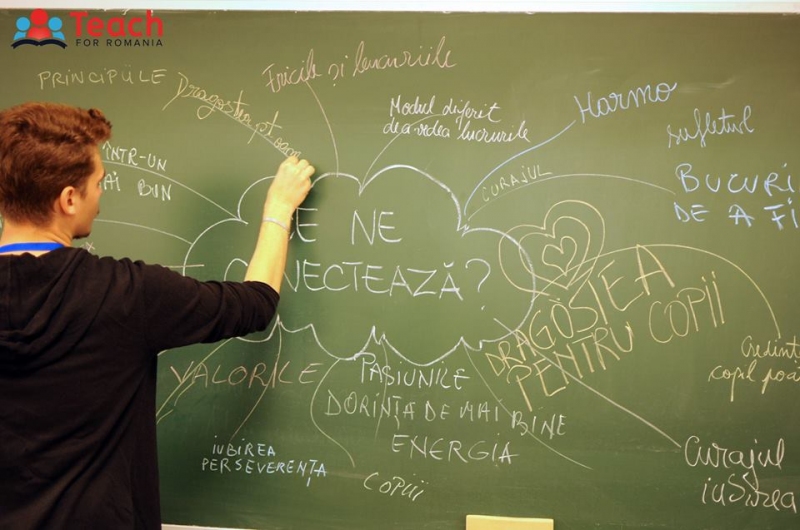 Teach
FOR ROMANIA
PRINCIPIILE
Dragostea pt
Fricile și bucuriile
Modul diferit
de a vedea lucrurile
Harmo
sufletul
ÎNTR-UN
BIN
CURAJUL
BUCURI
DE A FI
CE NE
CONECTEAZĂ?
DRAGOSTEA
PENTRU COPII
Credint
copil poa
VALORILE
PASIUNILE
DORINȚA DE MAI BINE
ENERGIA
IUBIREA
PERSEVERENȚA
COPIII
Curajul
iubirea